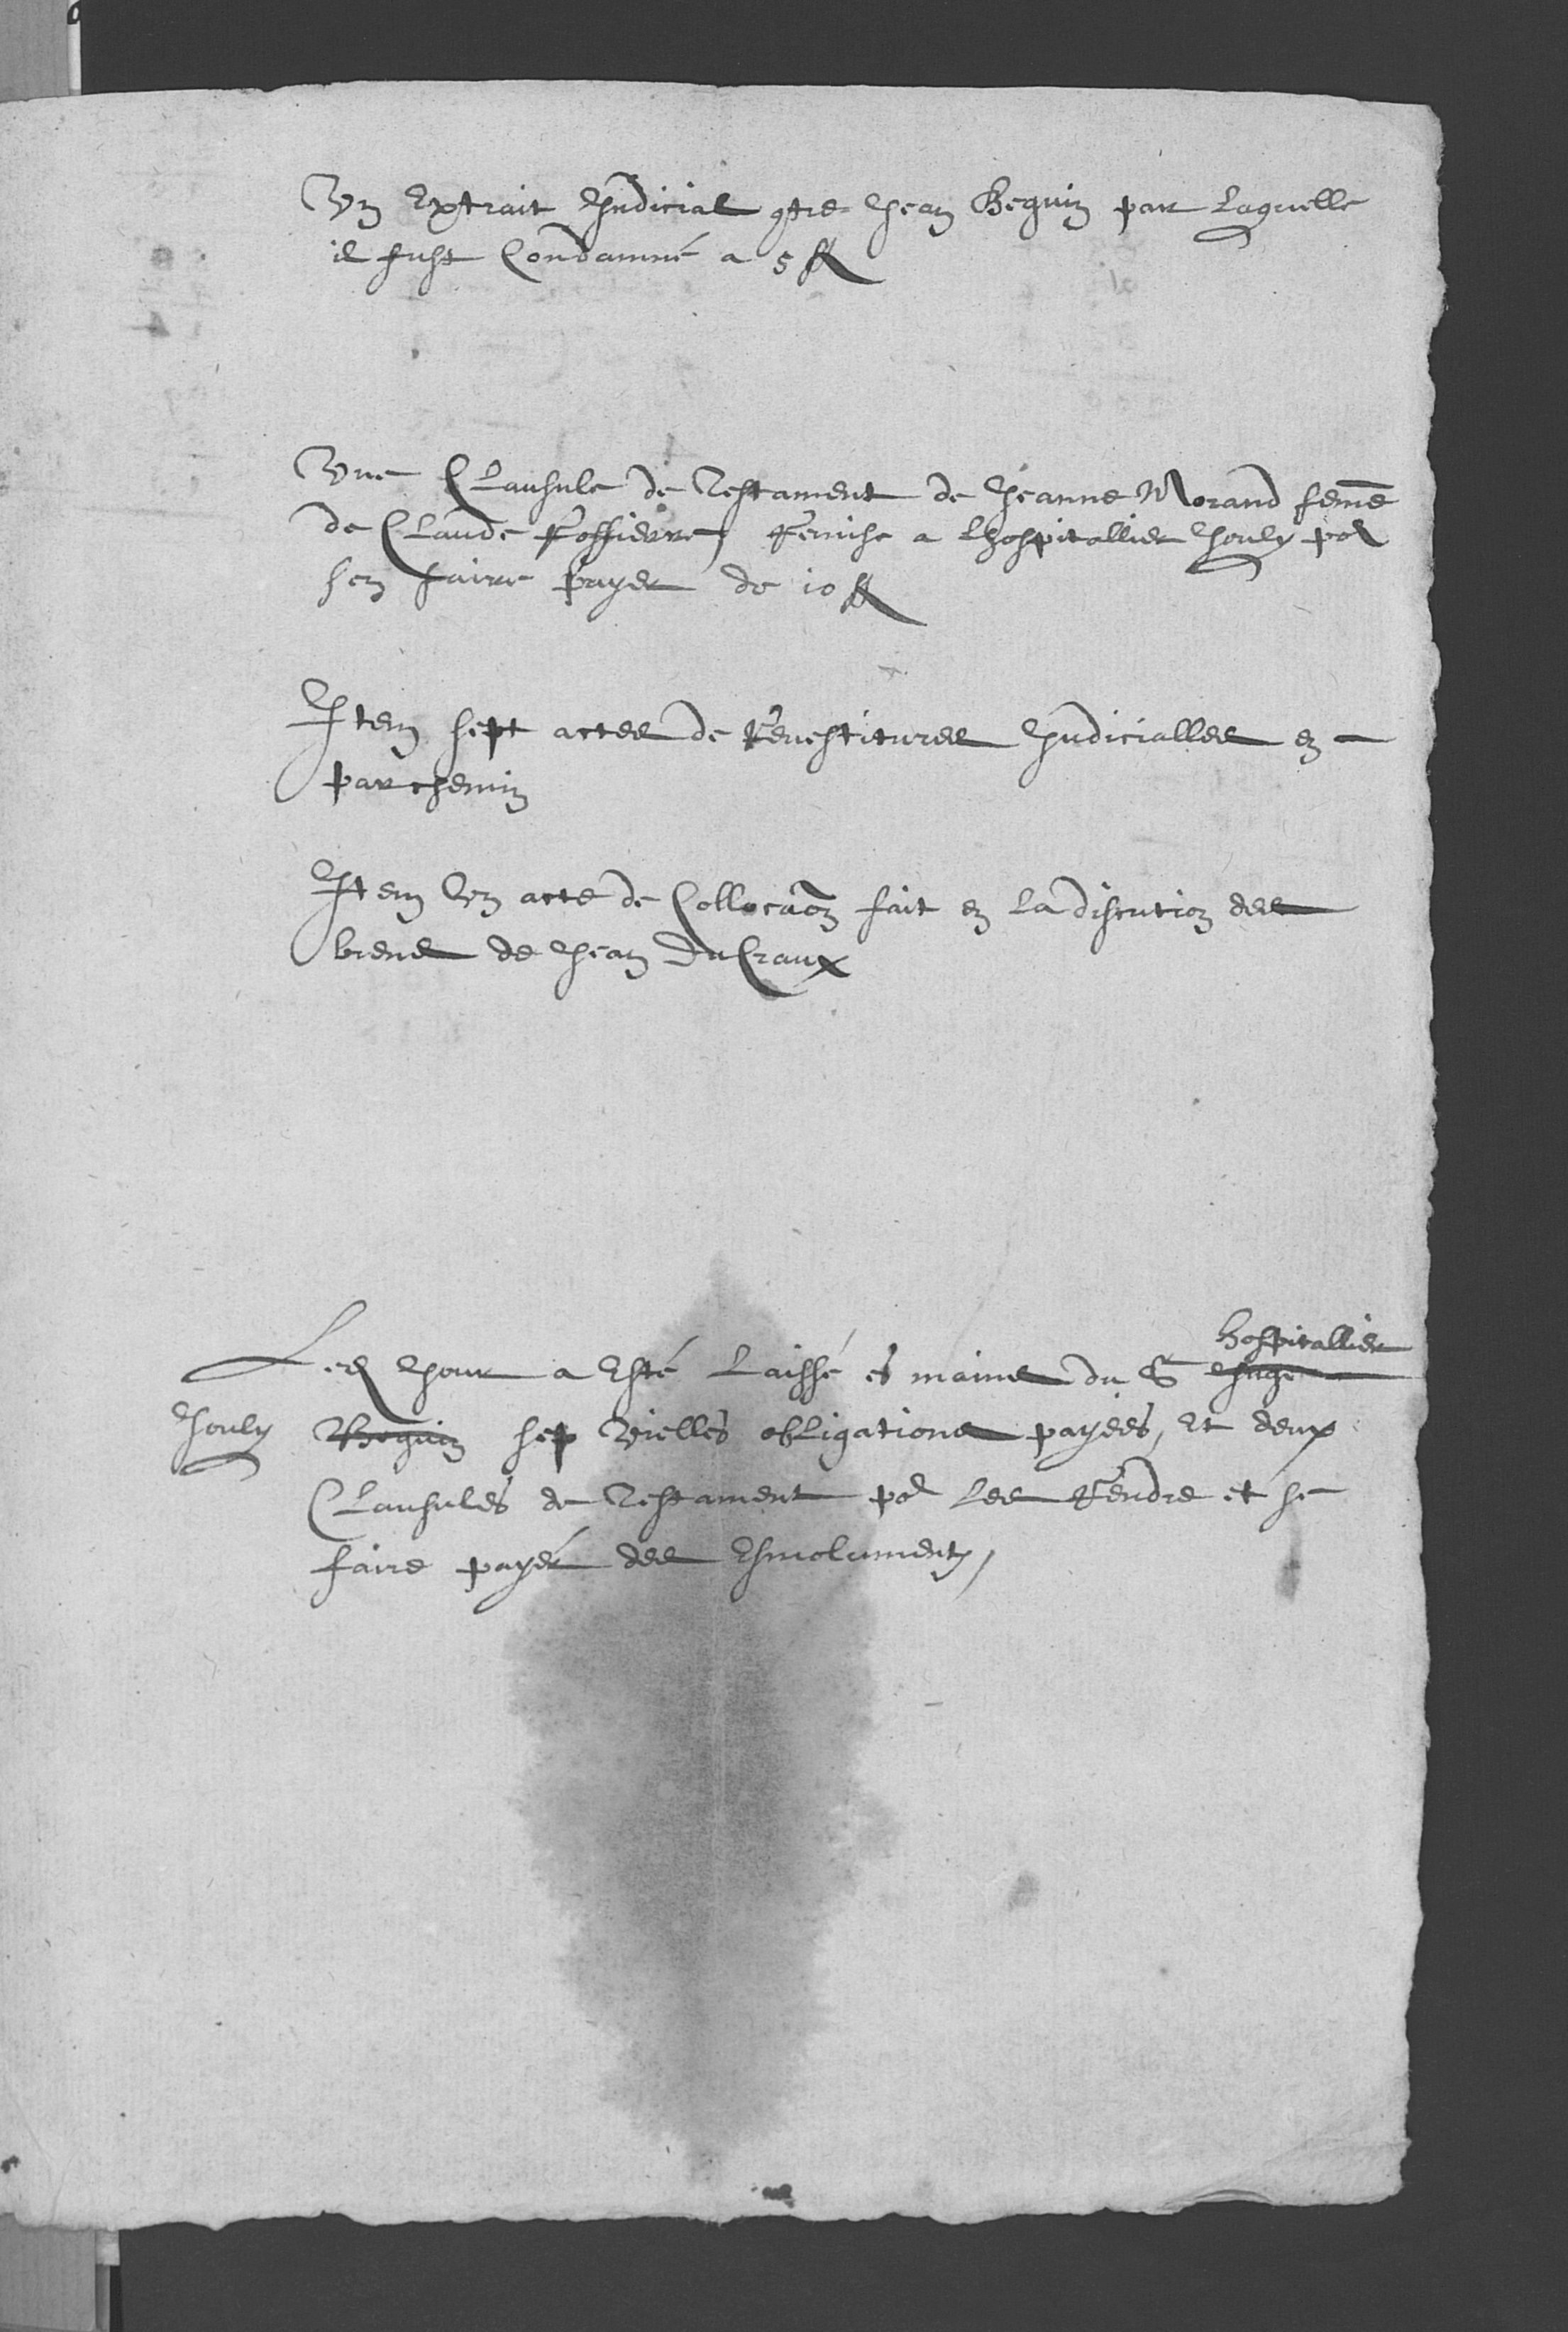 Un Extrait Judicial 9tre Jean Beguin par laquelle
il fust Condamné a 5 ff
Une Clausule de Testament de Jeanne Morand femē
de Claude Fossieure, Remise a Lhospitallier Jouly po^r
sen faire payer de 10 ff
Item sept actes de Revestitures Judicialles en
parchemin
Item Un acte de Collocaon fait en la discution des
biens de Jean DuCraux
Led Jour a Esté Laissé es mains du S^r Juge hospitallier
Jouly Beguin sep Vielles obligations payées, Et deux
Clausules de Testament po^r Les Rendre et se
faire payér des Esmoluments,